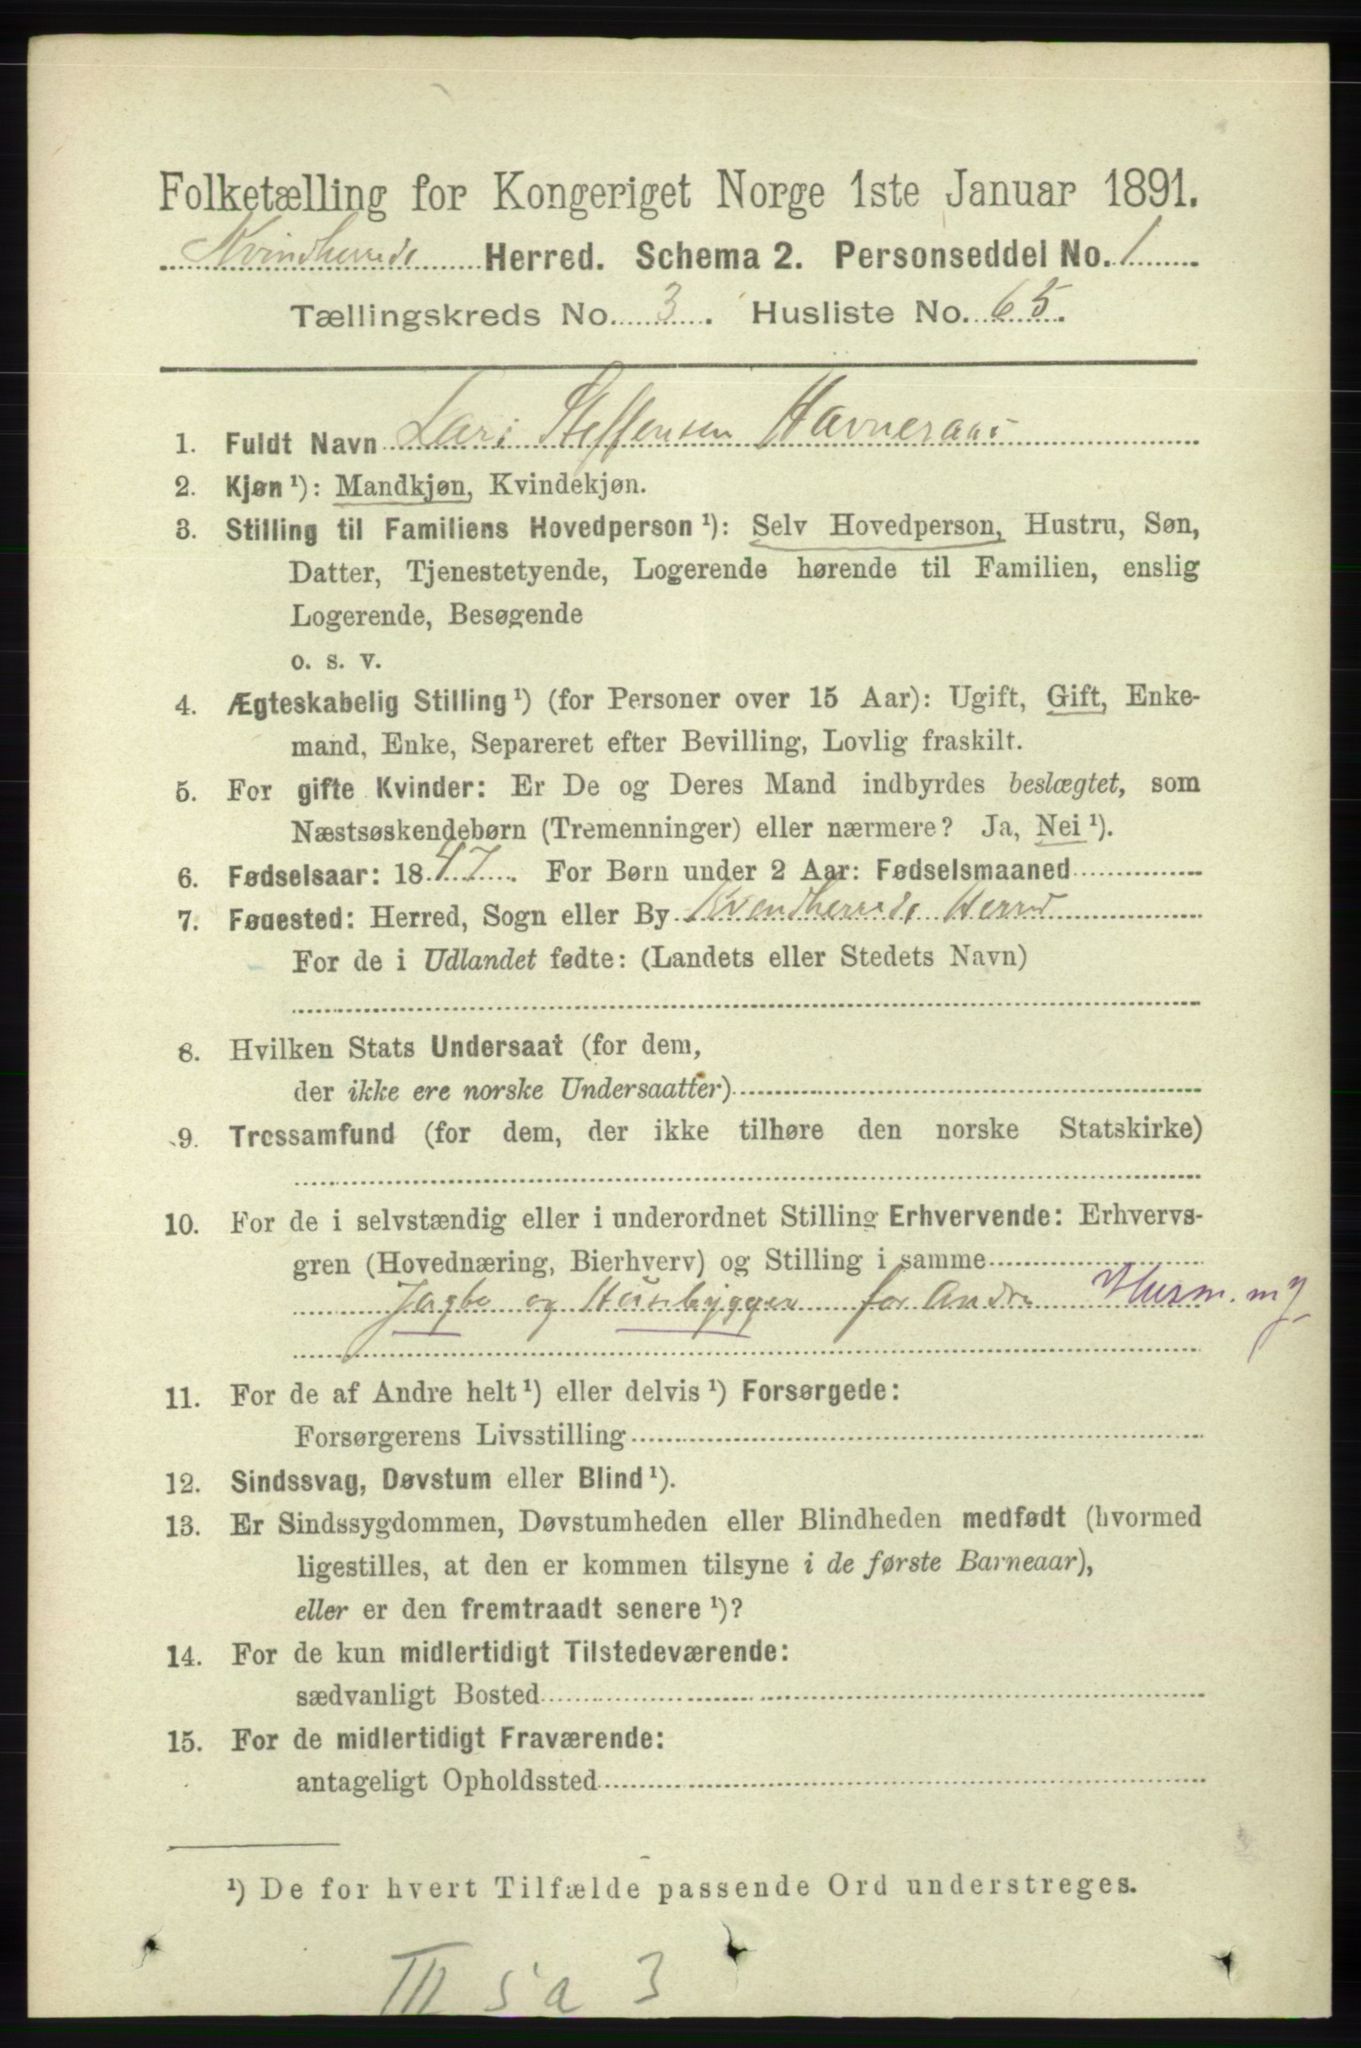 Folketælling for Kongeriget Norge 1ste Januar 1891.
Kvindherreds Herred. Schema 2. Personseddel No. 1
Tællingskreds No. 3. Husliste No. 65.
1. Fuldt Navn Lars Steffensen Havneraas
2. Kjøn ¹): Mandkjøn, Kvindekjøn.
3. Stilling til Familiens Hovedperson ¹): Selv Hovedperson, Hustru, Søn,
Datter, Tjenestetyende, Logerende hørende til Familien, enslig
Logerende, Besøgende
o. s. v.
4. Ægteskabelig Stilling ¹) (for Personer over 15 Aar): Ugift, Gift, Enke-
mand, Enke, Separeret efter Bevilling, Lovlig fraskilt.
5. For gifte Kvinder: Er De og Deres Mand indbyrdes beslægtet, som
Næstsøskendebørn (Tremenninger) eller nærmere? Ja, Nei ¹).
6. Fødselsaar: 1847. For Børn under 2 Aar: Fødselsmaaned
7. Føuested: Herred, Sogn eller By Kvindherreds Herred
For de i Udlandet fødte: (Landets eller Stedets Navn)
8. Hvilken Stats Undersaat (for dem,
der ikke ere norske Undersaatter)
9. Trossamfund (for dem, der ikke tilhøre den norske Statskirke)
10. For de i selvstændig eller i underordnet Stilling Erhvervende: Erhvervs-
gren (Hovednæring, Bierhverv) og Stilling i samme
Jagte og Husbygger for Andre Husm. m J
11. For de af Andre helt ¹) eller delvis ¹) Forsørgede:
Forsørgerens Livsstilling
12. Sindssvag, Døvstum eller Blind ¹).
13. Er Sindssygdommen, Døvstumheden eller Blindheden medfødt (hvormed
ligestilles, at den er kommen tilsyne i de første Barneaar),
eller er den fremtraadt senere ¹)?
14. For de kun midlertidigt Tilstedeværende:
sædvanligt Bosted
15. For de midlertidigt Fraværende:
antageligt Opholdssted
¹) De for hvert Tilfælde passende Ord understreges.
III 5a 3